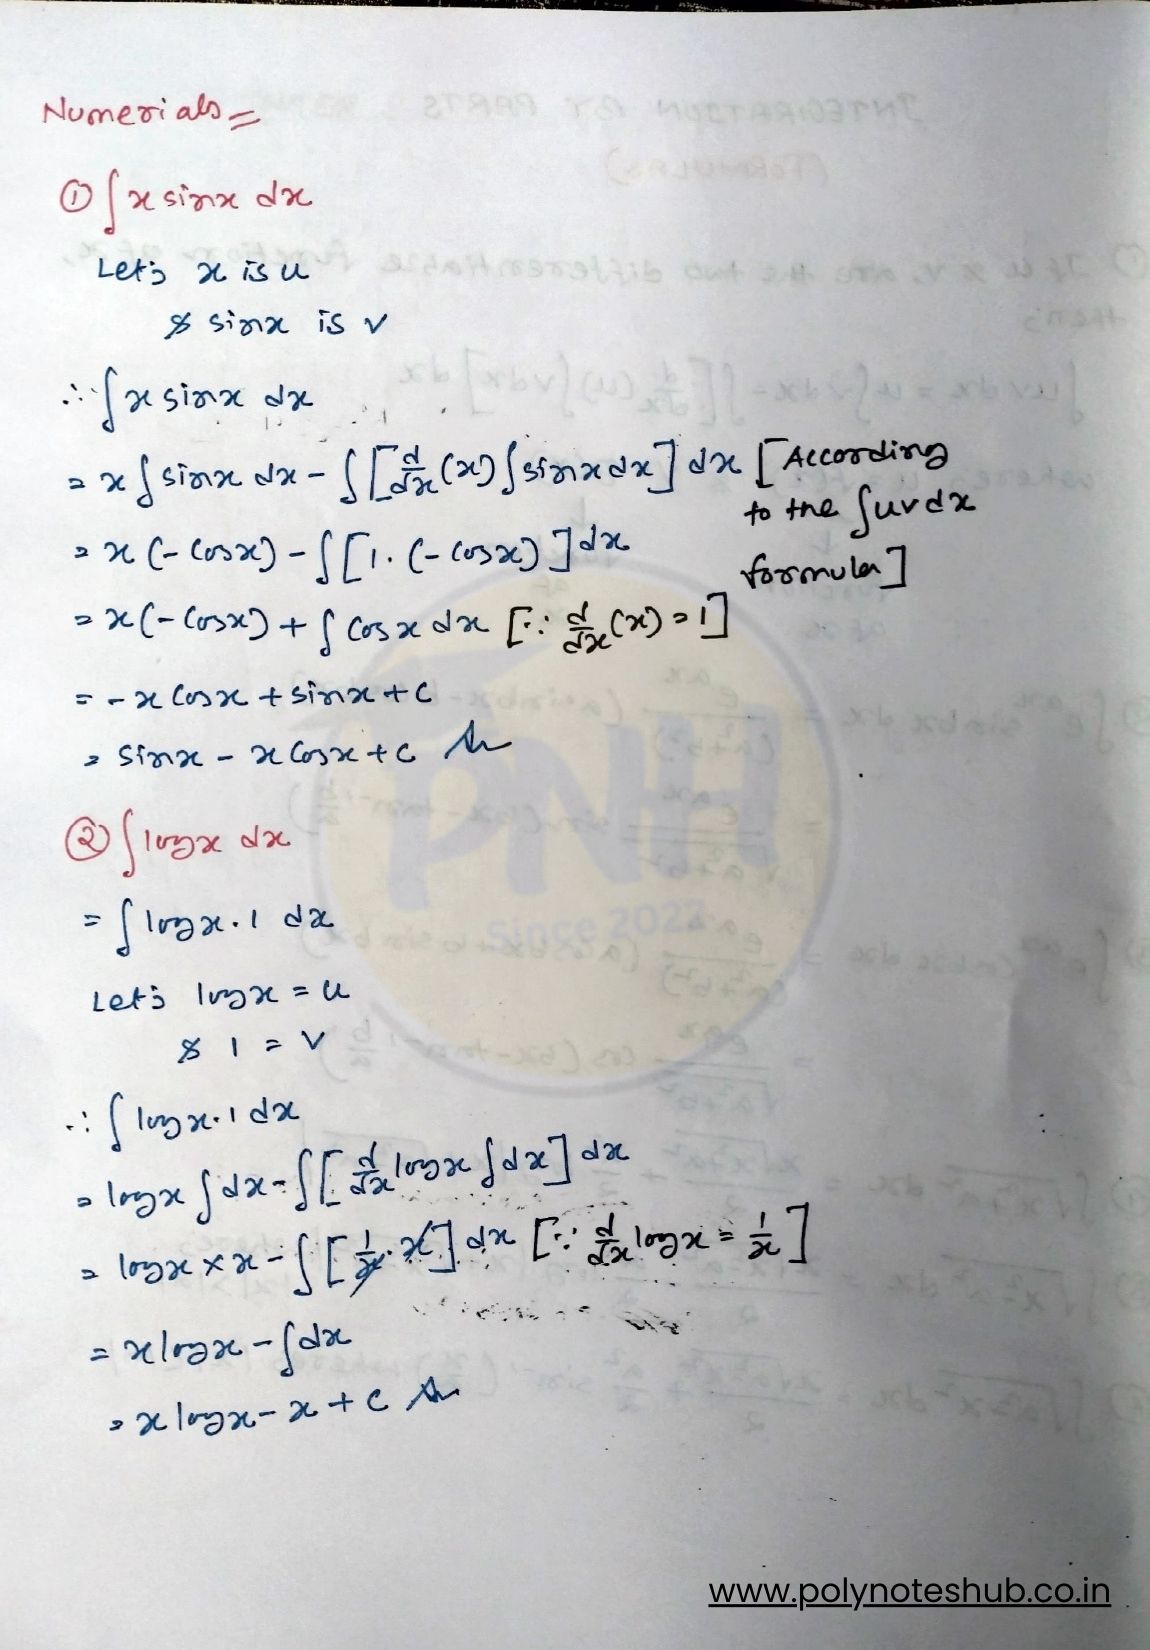 Numerials=
① ∫ x sinx dx
Let's x is u
& sinx is v
∴ ∫ x sinx dx
= x ∫ sinx dx - ∫ [d/dx (x) ∫ sinx dx] dx [According
to the ∫ uv dx
formula]
= x (- cosx) - ∫ [1. (- cosx)] dx
= x (- cosx) + ∫ cos x dx [∵ d/dx (x) = 1]
= - x cosx + sinx + c
= sinx - x cosx + c Ans
PNH
Since 2022
② ∫ logx dx
= ∫ logx . 1 dx
Let's logx = u
& 1 = v
∴ ∫ logx . 1 dx
= logx ∫ dx - ∫ [d/dx logx ∫ dx] dx
= logx × x - ∫ [1/x . x] dx [∵ d/dx logx = 1/x]
= x logx - ∫ dx
= x logx - x + c Ans
www.polynoteshub.co.in